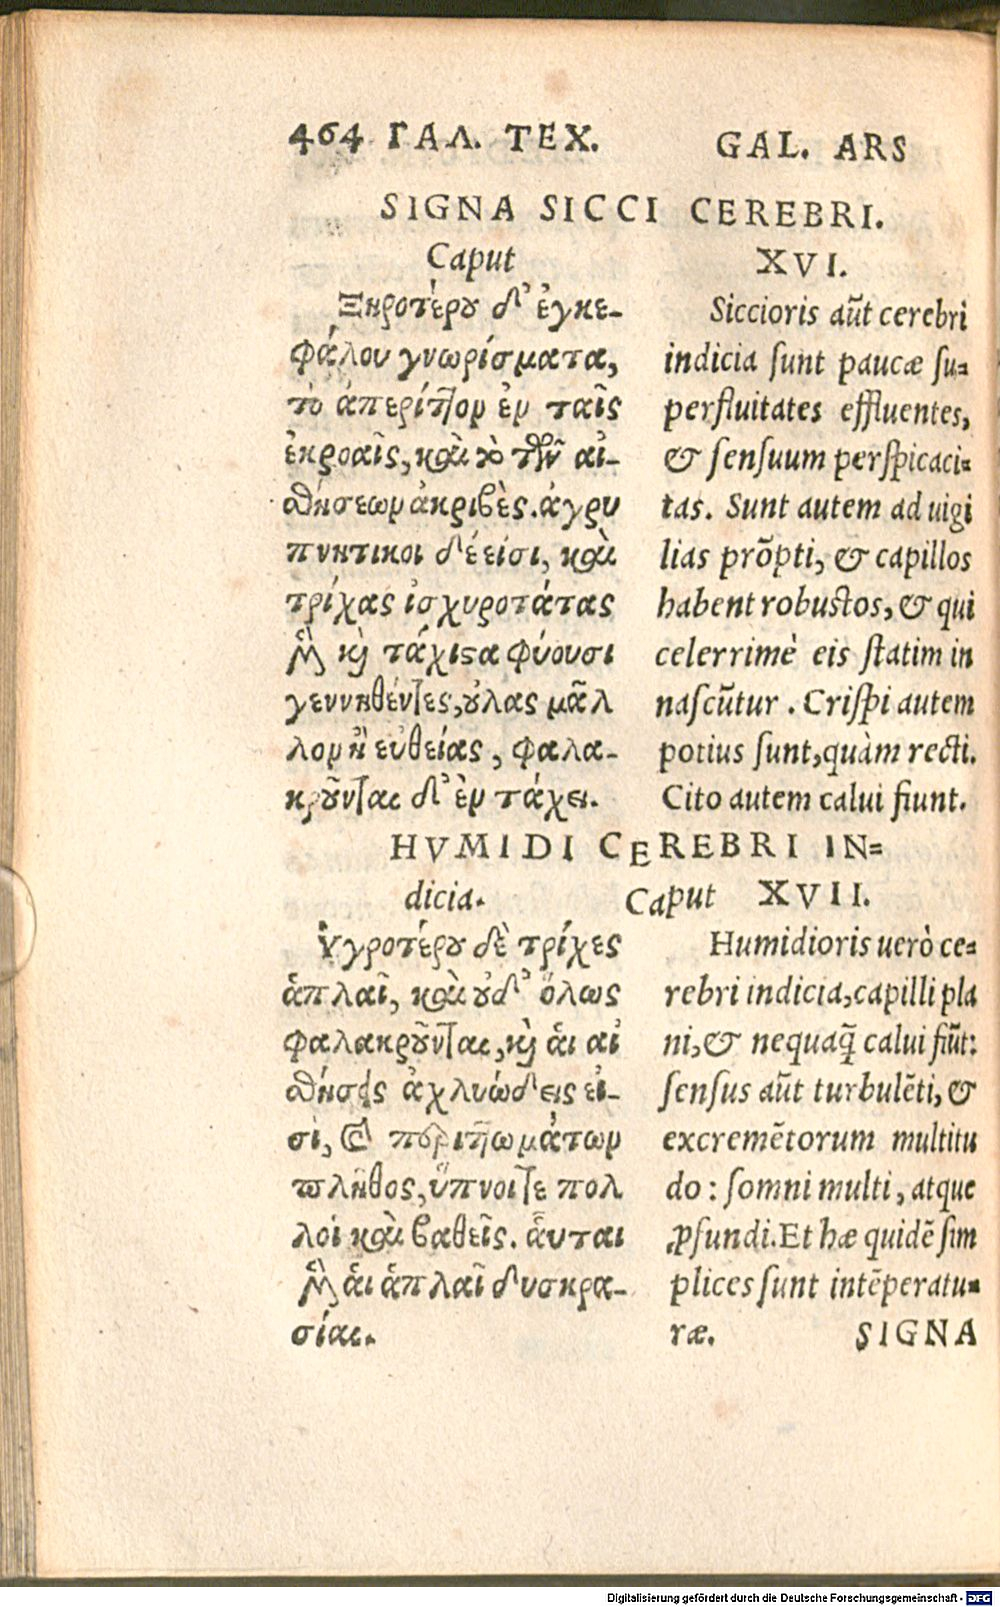 464 ΓΑΛ. ΤΕΧ. GAL. ARS
SIGNA SICCI CEREBRI.
Caput XVI.
Ξηροτέρου δ' ἐγκε-
φάλου γνωρίσματα,
τὸ ἀπερίττον ἐν ταῖς
ἐκροαῖς, καὶ τὸ τῶν αἰ-
σθήσεων ἀκριβὲς. ἀγρυ
πνητικοι δέ εἰσι, καὶ
τρίχας ἰσχυροτάτας
μὲν καὶ τάχιστα φύουσι
γεννηθέντες, οὔλας μᾶλ
λον ἢ εὐθείας, φαλα-
κροῦνται δ' ἐν τάχει.
Siccioris aũt cerebri
indicia sunt paucæ su-
perfluitates effluentes,
& sensuum perspicaci-
tas. Sunt autem ad uigi
lias prõpti, & capillos
habent robustos, & qui
celerrimè eis statim in
nascũtur. Crispi autem
potius sunt, quàm recti.
Cito autem calui fiunt.
HVMIDI CEREBRI IN-
dicia. Caput XVII.
Ὑγροτέρου δὲ τρίχες
ἁπλαῖ, καὶ οὐδ' ὅλως
φαλακροῦνται, καὶ ἁι αἰ
σθήσεις ἀχλυώδεις εἰ-
σὶ, καὶ περιττωμάτων
πλῆθος, ὕπνοι τε πολ
λοὶ καὶ βαθεῖς. ἅυται
μὲν ἁι ἁπλαῖ δυσκρα-
σίαι.
Humidioris uerò ce-
rebri indicia, capilli pla
ni, & nequaq̃ calui fiũt:
sensus aũt turbulẽti, &
excremẽtorum multitu
do: somni multi, atque
ꝓfundi. Et hæ quidẽ sim
plices sunt intẽperatu-
ræ. SIGNA
Digitalisierung gefördert durch die Deutsche Forschungsgemeinschaft - DFG